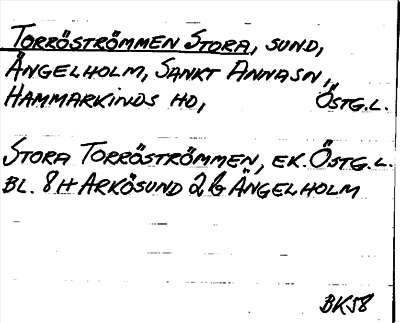 TORRÖSTRÖMMEN STORA, SUND,
ÄNGELHOLM, SANKT ANNA SN,
HAMMARKINDS HD, ÖSTG.L.
STORA TORRÖSTRÖMMEN, EK. ÖSTG.L.
BL. 8H ARKÖSUND 2b ÄNGELHOLM
BK58